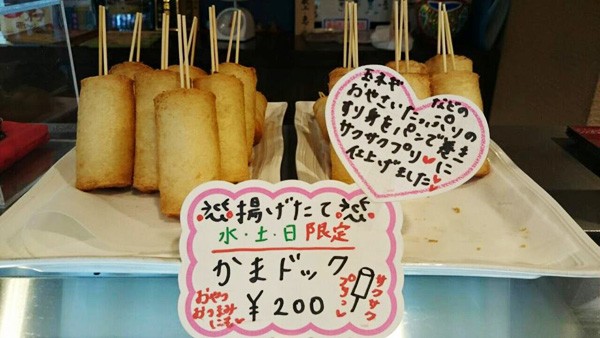 玉ネギなどの
おやさいたっぷりの
すり身をパンで巻き
サクサクプリ♥に
仕上げました♥
揚げたて
水・土・日限定
かまドック
¥200
おやつ
おつまみ
にも♥
サクサク
プリっ♥